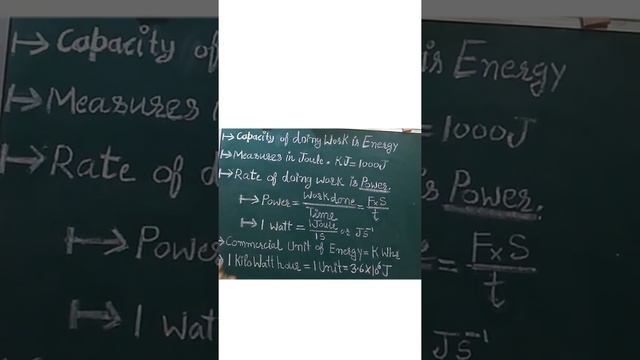 ↦ Capacity of doing Work is Energy
↦ Measures in Joule. KJ = 1000J
↦ Rate of doing work is Power.
↦ Power = Work done / Time = F×S / t
↦ 1 Watt = 1Joule / 1S or JS⁻¹
Commercial Unit of Energy = K Whr
1 KiloWatt hour = 1 Unit = 3.6×10⁶J